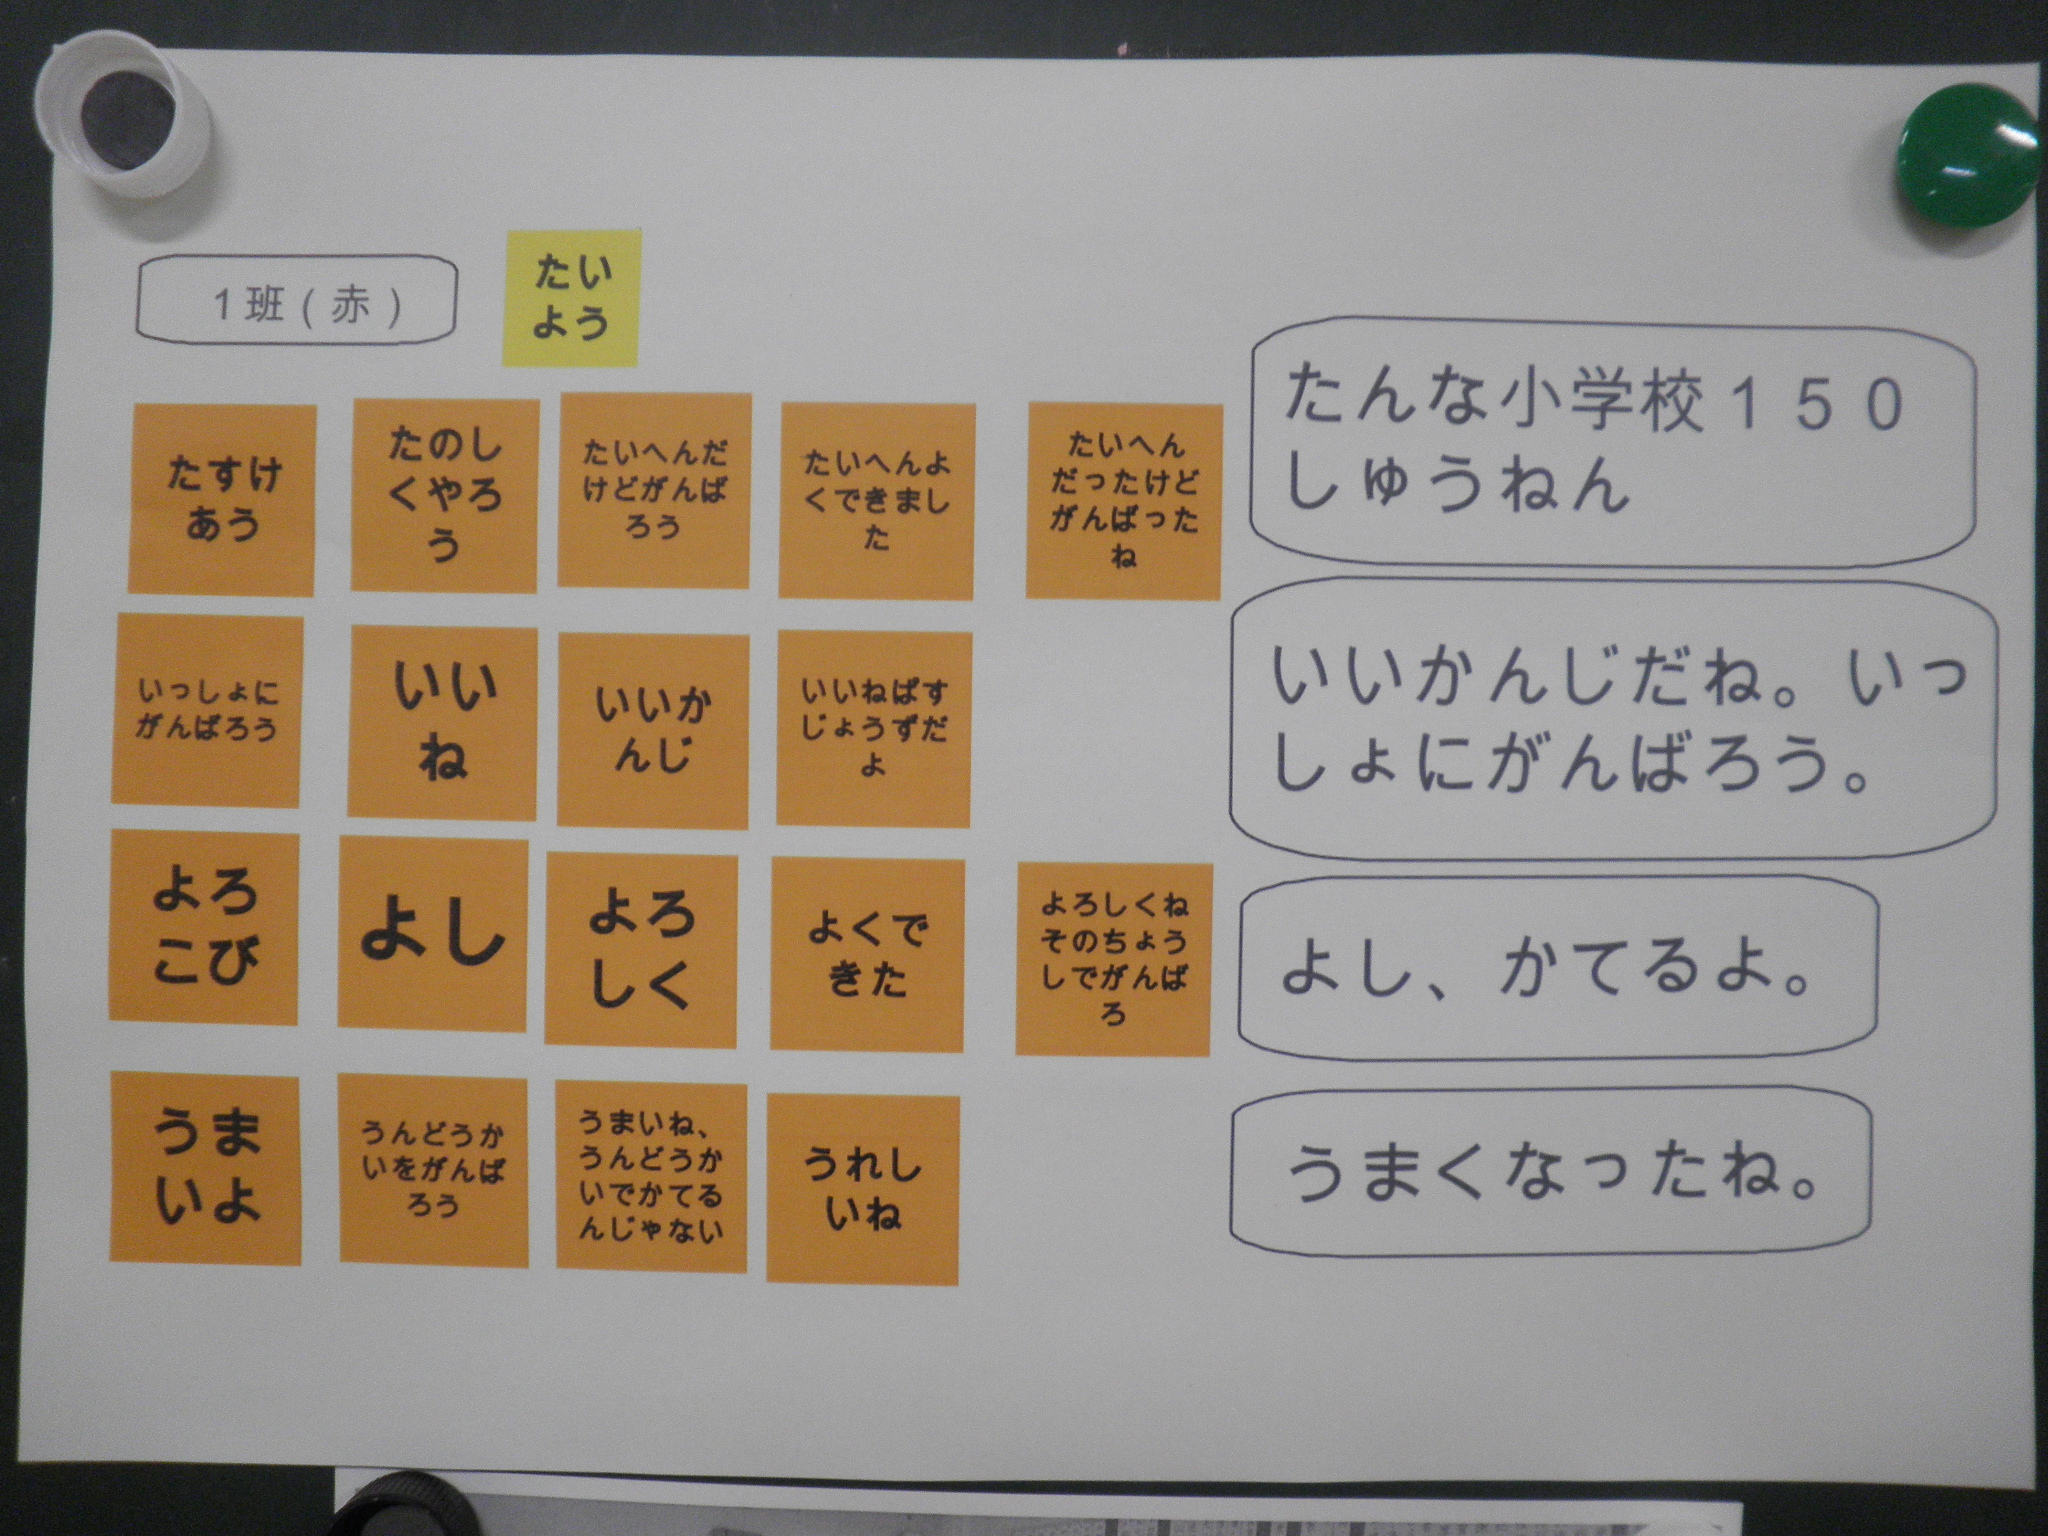 1班(赤)
たい
よう
たすけ
あう
たのし
くやろ
う
たいへんだ
けどがんば
ろう
たいへんよ
くできまし
た
たいへん
だったけど
がんばった
ね
たんな小学校150
しゅうねん
いっしょに
がんばろう
いい
ね
いいか
んじ
いいねぱす
じょうずだ
よ
いいかんじだね。いっ
しょにがんばろう。
よろ
こび
よし
よろ
しく
よくで
きた
よろしくね
そのちょう
しでがんば
ろ
よし、かてるよ。
うま
いよ
うんどうか
いをがんば
ろう
うまいね、
うんどうか
いでかてる
んじゃない
うれし
いね
うまくなったね。